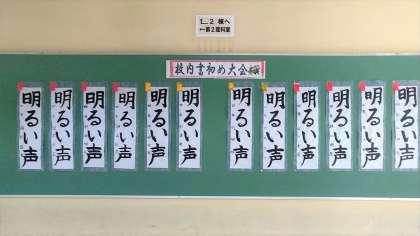 2 棟へ
←第2理科室
校内書初め大会
明るい声
明るい声
明るい声
明るい声
明るい声
明るい声
明るい声
明るい声
明るい声
明るい声
明るい声
明るい声